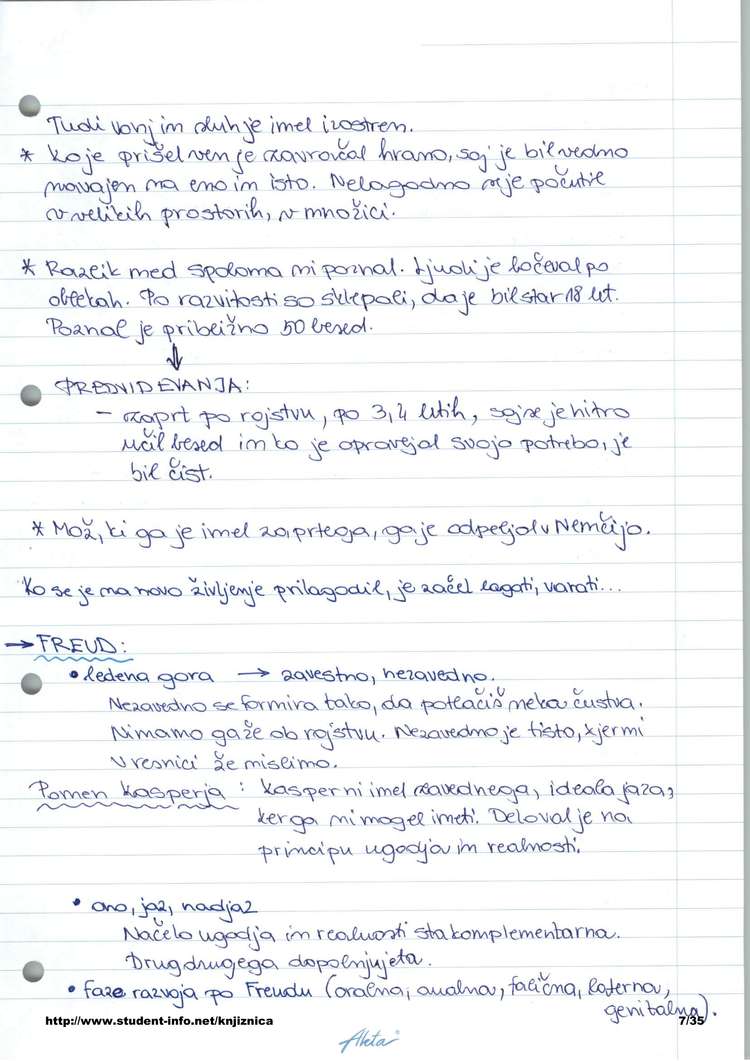 Tudi vonj in sluh je imel izostren.
* Ko je prišel ven je zavračal hrano, saj je bil vedno
navajen na eno in isto. Nelagodno se je počutil
v velikih prostorih, v množici.
* Razlik med spoloma ni poznal. Ljudi je ločeval po
oblekah. Po razvitosti so sklepali, da je bil star 18 let.
Poznal je približno 50 besed.
↓
PREDVIDEVANJA:
- zaprt po rojstvu, po 3, 4 letih, saj se je hitro
učil besed in ko je opravljal svojo potrebo, je
bil čist.
* Mož, ki ga je imel zaprtega, ga je odpeljal v Nemčijo.
Ko se je na novo življenje prilagodil, je začel lagati, varati...
→ FREUD:
• ledena gora → zavestno, nezavedno.
Nezavedno se formira tako, da potlačiš neka čustva.
Nimamo ga že ob rojstvu. Nezavedno je tisto, kjer mi
v resnici že mislimo.
Pomen Kasperja: Kasper ni imel zavednega, ideala jaza,
ker ga ni mogel imeti. Deloval je na
principu ugodja in realnosti.
• ono, jaz, nadjaz
Načelo ugodja in realnosti sta komplementarna.
Drug drugega dopolnjujeta.
• faze razvoja po Freudu (oralna, analna, falična, laterna,
genitalna).
http://www.student-info.net/knjiznica 7/35
Akta